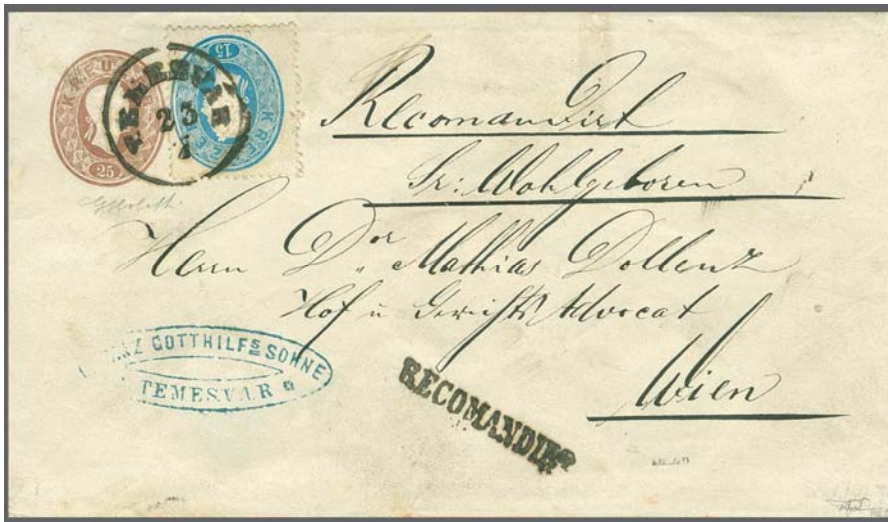 25
15
TEMESVAR
23
7
Recomandirt
Sr: Wohlgeboren
Herrn Dor Mathias Dollenz
Hof u Gerichts Advocat
Wien
GOTTHILFS SOHNE
TEMESVAR
RECOMANDIRT